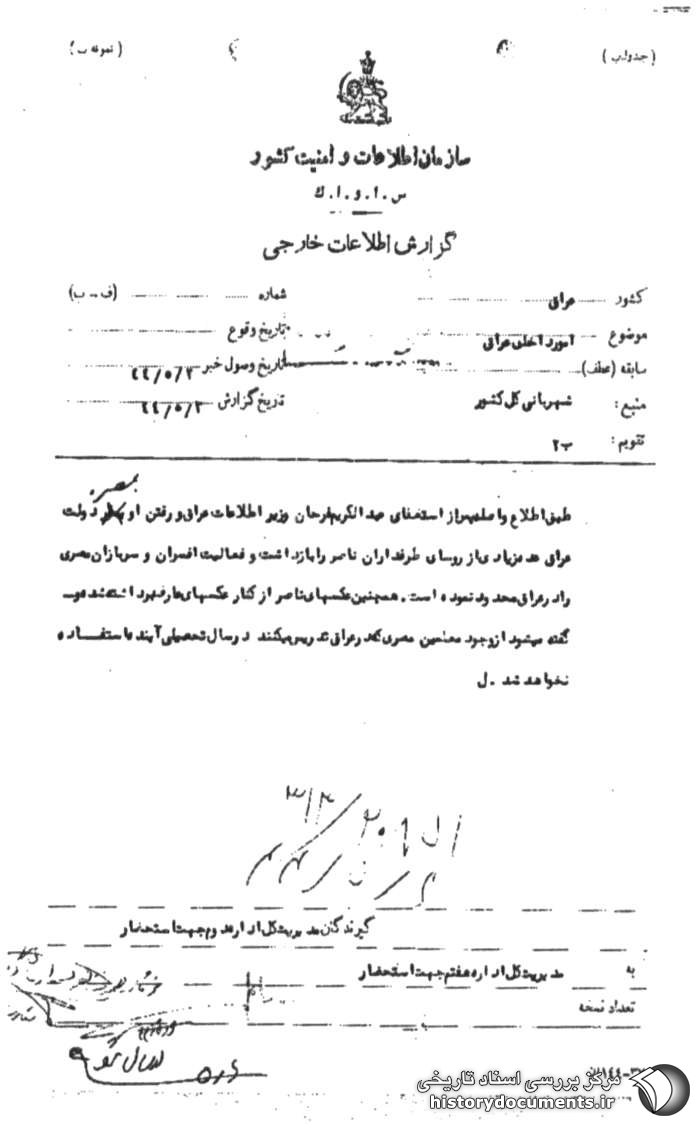 (جدول ب) (نمونه ب)
سازمان اطلاعات و امنیت کشور
س.ا.و.ا.ك
گزارش اطلاعات خارجی
کشور عراق شماره (ف-ب)
موضوع امور داخلی عراق تاریخ وقوع
سابقه (عطف) تاریخ وصول خبر ۴۴/۵/۲
منبع: شهربانی کل کشور تاریخ گزارش ۴۴/۵/۲
تقویم: ب۲
بمصر
طبق اطلاع واصله پس از استعفای عبدالکریم فرحان وزیر اطلاعات عراق و رفتن او دولت
عراق عده زیادی از روسای طرفداران ناصر را بازداشت و فعالیت افسران و سربازان مصری
را در عراق محدود نموده است. همچنین عکسهای ناصر از کنار عکسهای عارف برداشته شده و
گفته میشود از وجود معلمین مصری که در عراق تدریس میکنند در سال تحصیلی آینده استفاده
نخواهد شد. ل
گیرندگان مدیریت کل اداره دوم جهت استحضار
به مدیریت کل اداره هفتم جهت استحضار
تعداد نسخه
مرکز بررسی اسناد تاریخی
historydocuments.ir